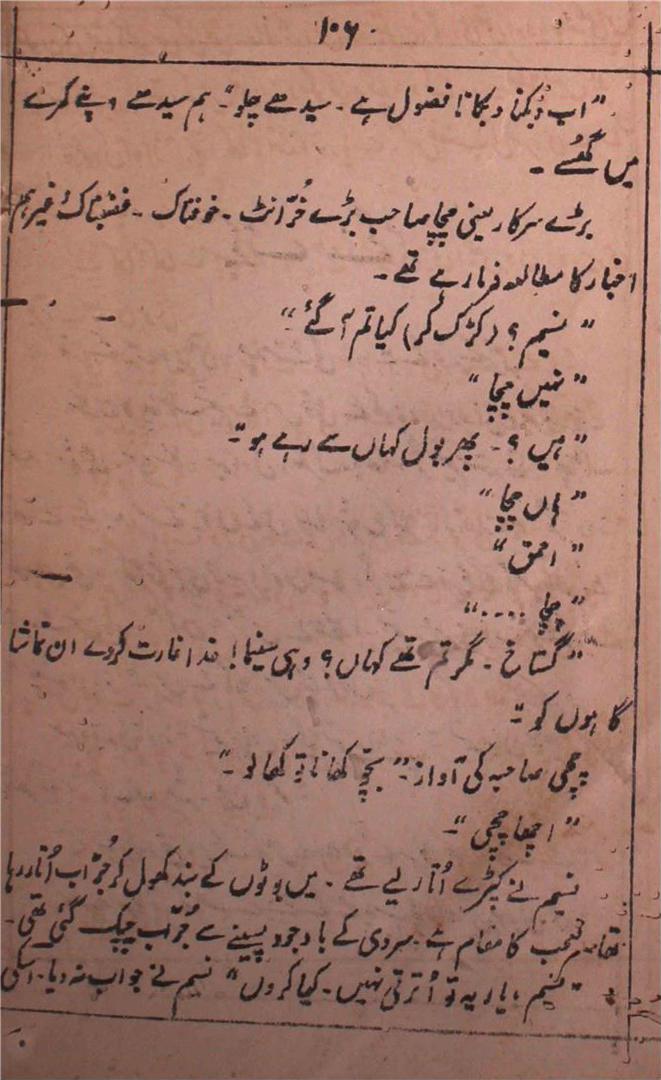 ۱۰۶
"اب دُبکنا دبکانا فضول ہے۔ سیدھے چلو"۔ ہم سیدھے اپنے کمرے
میں گھُسے۔
بڑے سرکار یعنی چچا صاحب بڑے خُرّانٹ۔ خوفناک۔ غضبناک غیر ہم
اخبار کا مطالعہ فرما رہے تھے۔
"نسیم؟ (کڑک کر) کیا تم آ گئے"
"نہیں چچا"
"ہیں؟۔ پھر بول کہاں سے رہے ہو"۔
"ہاں چچا"
"احمق"
"چچا ...."
"گستاخ۔ مگر تم تھے کہاں؟ وہی سینما! خدا غارت کردے ان تماشا
گاہوں کو"۔
چچی صاحبہ کی آواز۔ "بچّو کھانا تو کھا لو"۔
"اچھا چچی"۔
نسیم نے کپڑے اُتار لیے تھے۔ میں بوٹوں کے بند کھول کر جُرّاب اُتار رہا
تھا۔ تعجب کا مقام ہے۔ سردی کے باوجود پسینے سے جُرّاب چپک گئی تھی۔
"نسیم، یار یہ تو اُترتی نہیں۔ کیا کروں" نسیم نے جواب نہ دیا۔ اسکی